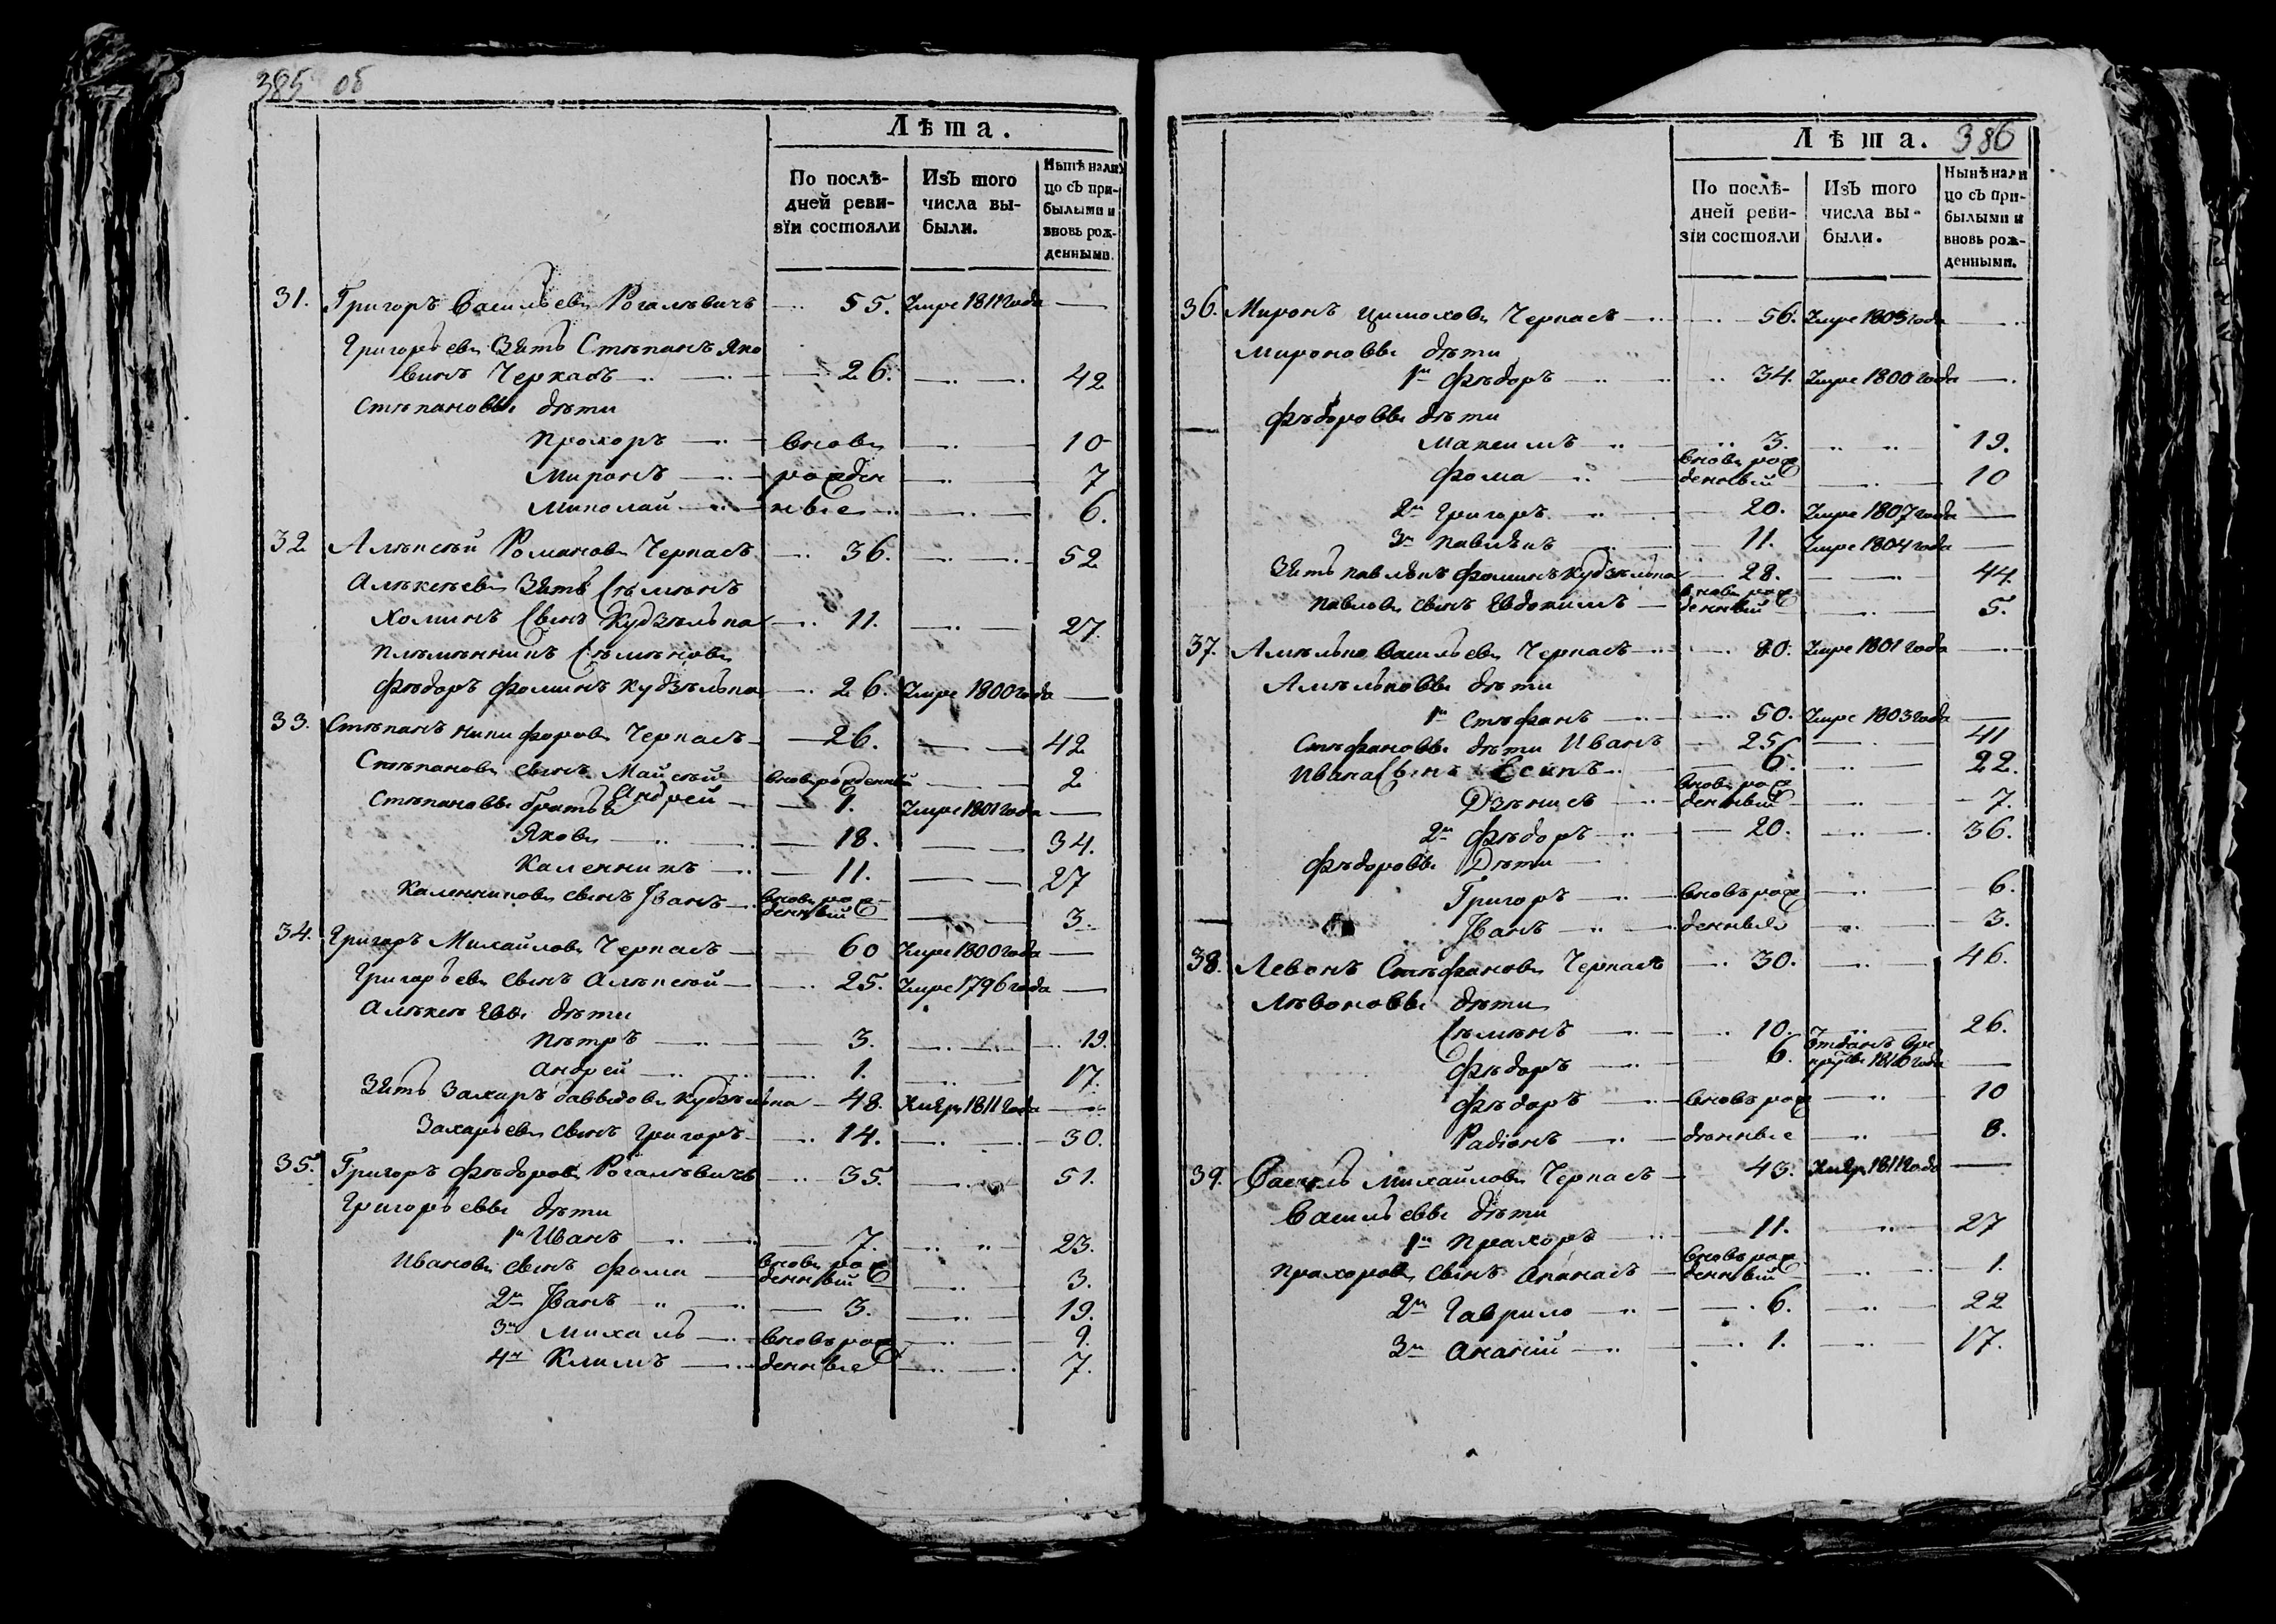 385 об
Лѣта.
По послѣ-
дней реви-
зїи состояли
Изъ того
числа вы-
были.
Нынѣ нали
цо съ при-
былыми и
вновь рож-
денными.
31. Григоръ Васильевъ Рогалевичъ 55. Умре 1811 года
Григорьевъ Зять Стѣпанъ Яко
винъ Черкасъ 26. 42
Стѣпановы дѣти
Прохоръ вновь 10
Миронъ рожден 7
Миколай ные 6.
32 Алѣксѣй Романовъ Черкасъ 36. 52
Алѣксѣевъ Зять Сѣмѣнъ
Хоминъ Сынъ Кудзѣлька 11. 27.
Плѣмѣнникъ Сѣмѣновъ
Фѣдоръ Фоминъ Кудзѣлька 26. Умре 1800 года
33. Стѣпанъ Никифоровъ Черкасъ 26. 42
Стѣпановъ сынъ Майсѣй вновь рожденный 2
Стѣпановы братья Андрей 1. Умре 1801 года
Яковъ 18. 34.
Каленникъ 11. 27
Каленниковъ сынъ Іванъ вновь рож
денный 3.
34. Григоръ Михайловъ Черкасъ 60 Умре 1800 года
Григорьевъ сынъ Алѣксѣй 25. Умре 1796 года
Алѣксѣевы дѣти
Пѣтръ 3. 19.
Андрей 1. 17.
Зять Захаръ Давыдовъ Кудзѣлька 48. Умре 1811 года
Захарьевъ сынъ Григоръ 14. 30.
35. Григоръ Фѣдоровъ Рогалѣвичъ 35. 51.
Григорьевы дѣти
1й Иванъ 7. 23.
Ивановъ сынъ Фома вновь рож
денный 3.
2й Іванъ 3. 19.
3й Михаль вновь рож 9.
4й Климъ денные 7.
386
Лѣта.
По послѣ-
дней реви-
зїи состояли
Изъ того
числа вы-
были.
Нынѣ нали
цо съ при-
былыми и
вновь рож-
денными.
36. Миронъ Цимоховъ Черкасъ 56. Умре 1803 года
Мироновы дѣти
1й Фѣдоръ 34. Умре 1800 года
Фѣдоровы дѣти
Максимъ 3. 19.
Фома вновь рож
денный 10
2й Григоръ 20. Умре 1807 года
3й Павлѣкъ 11. Умре 1804 года
Зять Павлѣкъ Фоминъ Кудзѣлька 28. 44.
Павловъ сынъ Евдокимъ вновь рож
денный 5.
37. Амѣлько Васильевъ Черкасъ 80. Умре 1801 года
Амѣльковы дѣти
1й Стѣфанъ 50. Умре 1803 года
Стѣфановы дѣти Иванъ 25 41
Ивана Сынъ Есипъ 6. 22.
Дзѣнисъ вновь рож
денный 7.
2й Фѣдоръ 20. 36.
Фѣдоровы Дѣти
Григоръ вновь рож 6.
Іванъ денные 3.
38. Левонъ Стѣфановъ Черкасъ 30. 46.
Лѣвоновы дѣти
Сѣмѣнъ 10. 26.
Фѣдоръ 6. Отданъ в ре
круты 1810 года
Фѣдоръ вновь рож 10
Радіонъ денные 8.
39. Василь Михайловъ Черкасъ 43. Умре 1811 года
Васильевы дѣти
1й Прахоръ 11. 27
Прахоровъ сынъ Апанасъ вновь рож
денный 1.
2й Гаврило 6. 22
3й Ананій 1. 17.